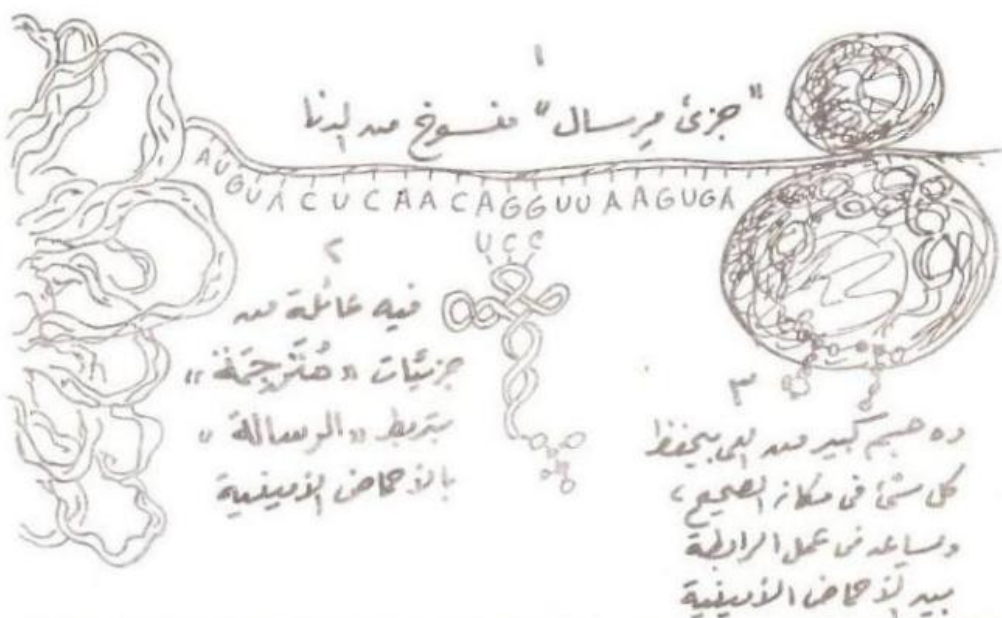 ١
"جزئ مرسال" منسوخ من الدنا
A U G U A C U C A A C A G G U U A A G U G A
U C C
٢
فيه عائلة من
جزيئات «مُترجِمَة»
بتربط «الرسالة»
بالأحماض الأمينية
٣
ده جسم كبير من اللى بيحفظ
كل شئ فى مكانه الصحيح،
ويساعد فى عمل الرابطة
بين الأحماض الأمينية